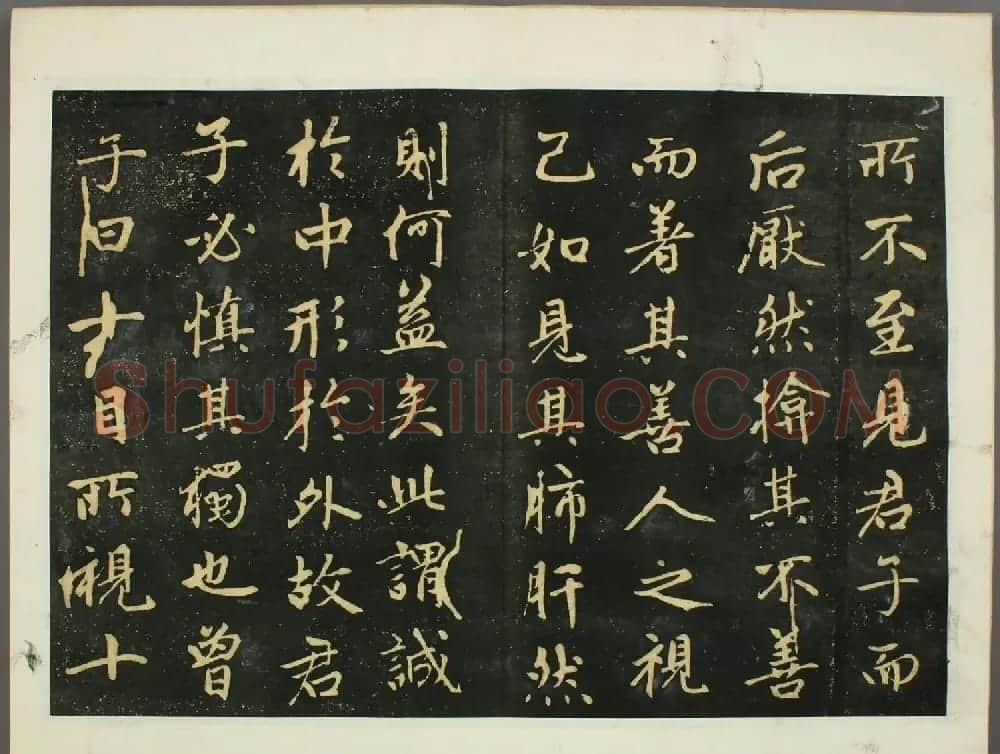 所不至見君子而
后厭然揜其不善
而著其善人之視
己如見其肺肝然
則何益矣此謂誠
於中形於外故君
子必慎其獨也曾
子曰十目所視十
Shufaziliao.COM